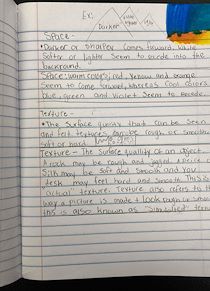 Ex:
Darker
Space -
• Darker or sharper comes forward. While
softer or lighter seem to recede into the
background.
Space: warm colors, red, yellow and orange
seem to come forward, whereas cool colors
blue, green and violet seem to recede.
Texture -
• The surface quality that can be seen
and felt. textures can be rough or smooth
soft or hard.
Texture - The surface quality of an object. A
rock may be rough and jagged. A piece of
silk may be soft and smooth and your
desk may feel hard and smooth. This is
"actual" texture. Texture also refers to the
way a picture is made to look rough or smooth
this is also known as "simulated" texture